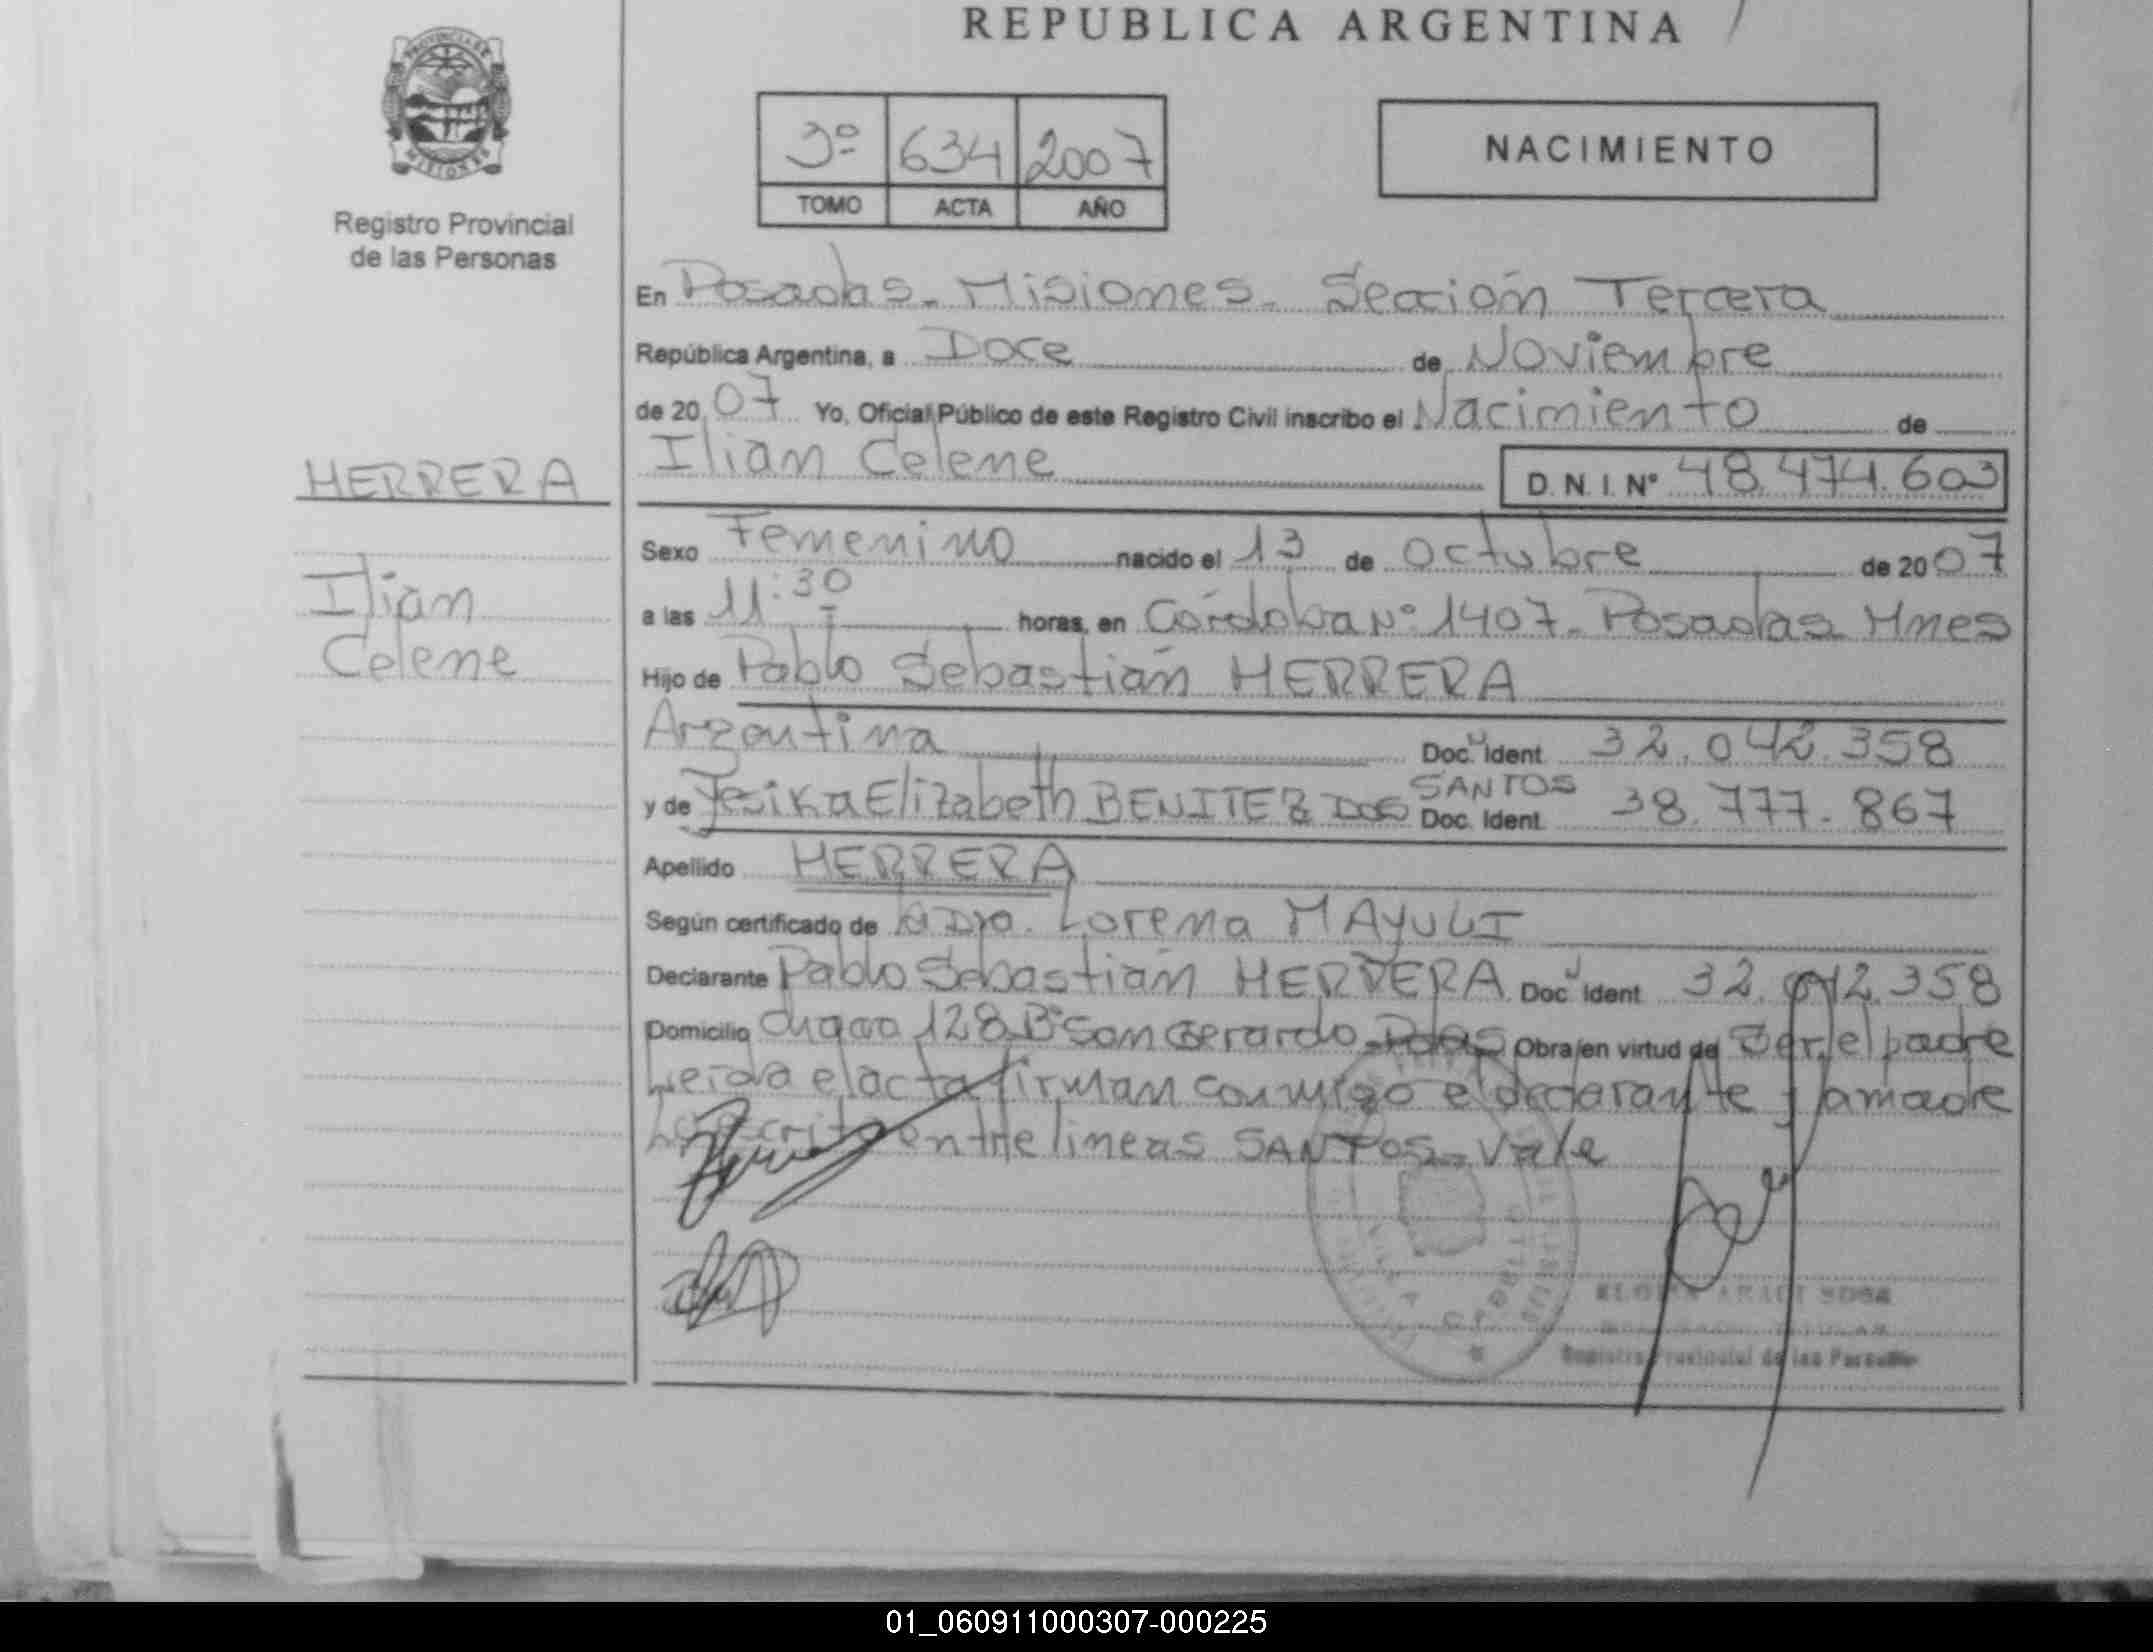 REPUBLICA ARGENTINA
PROVINCIA DE
MISIONES
Registro Provincial
de las Personas
3º 634 2007
TOMO ACTA AÑO
NACIMIENTO
En Posadas - Misiones - Sección Tercera
República Argentina, a Doce de Noviembre
de 20 07 Yo, Oficial Público de este Registro Civil inscribo el Nacimiento de
Ilian Celene D.N.I. Nº 48.474.603
HERRERA
Ilian
Celene
Sexo Femenino nacido el 13 de Octubre de 20 07
a las 11:30 horas, en Córdoba Nº 1407 - Posadas Mnes
Hijo de Pablo Sebastián HERRERA
Argentina Doc. Ident. 32.042.358
y de Jesika Elizabeth BENITEZ DOS SANTOS Doc. Ident. 38.777.867
Apellido HERRERA
Según certificado de la Dra. Lorena MAYULI
Declarante Pablo Sebastián HERRERA Doc. Ident. 32.042.358
Domicilio 128 Bº San Gerardo Pdas Obra en virtud de Ser el padre
Leída el acta firman conmigo el declarante y la madre
Lo escrito entre lineas SANTOS - Vale
Registro Provincial de las Personas
01_060911000307-000225